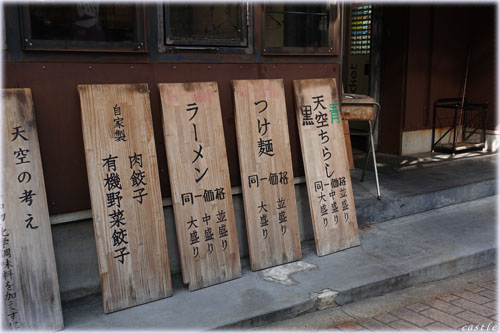 天空の考え
化学調味料を加えず
自家製
肉餃子
有機野菜餃子
ラーメン
同一価格
並盛り
中盛り
大盛り
つけ麺
同一価格
並盛り
大盛り
黒
青
天空ちらし
同一価格
並盛り
大盛り
castle